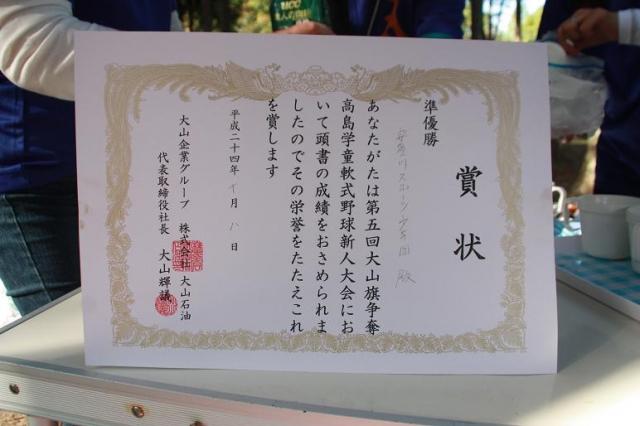 賞状
準優勝
安曇川スポーツ少年団 殿
あなたがたは第五回大山旗争奪
高島学童軟式野球新人大会にお
いて頭書の成績をおさめられま
したのでその栄誉をたたえこれ
を賞します
平成二十四年 十月 八 日
大山企業グループ 株式会社 大山石油
代表取締役社長 大山輝議